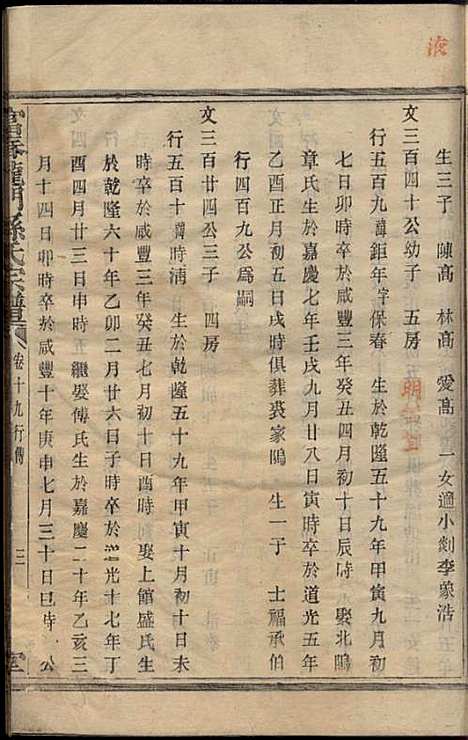 液
生三子　陳高　林高　愛高　一女適小剡李蒙浩
文三百四十公幼子　五房　明
行五百九諱鉅年字保春　生於乾隆五十九年甲寅九月初
七日卯時卒於咸豐三年癸丑四月初十日辰時　娶北隝
章氏生於嘉慶七年壬戌九月廿八日寅時卒於道光五年
乙酉正月初五日戌時俱葬裘家隝　生一子　士福承伯
行四百九公爲嗣
文三百廿四公三子　四房
行五百十諱時淸　生於乾隆五十九年甲寅十月初十日未
時卒於咸豐三年癸丑七月初十日酉時　娶上館盛氏生
於乾隆六十年乙卯二月廿六日子時卒於道光十七年丁
酉四月廿三日申時五　繼娶傅氏生於嘉慶二十年乙亥三
月十四日卯時卒於咸豐十年庚申七月三十日巳時　公
富春龍門孫氏宗譜　卷十九行傳　三　堂